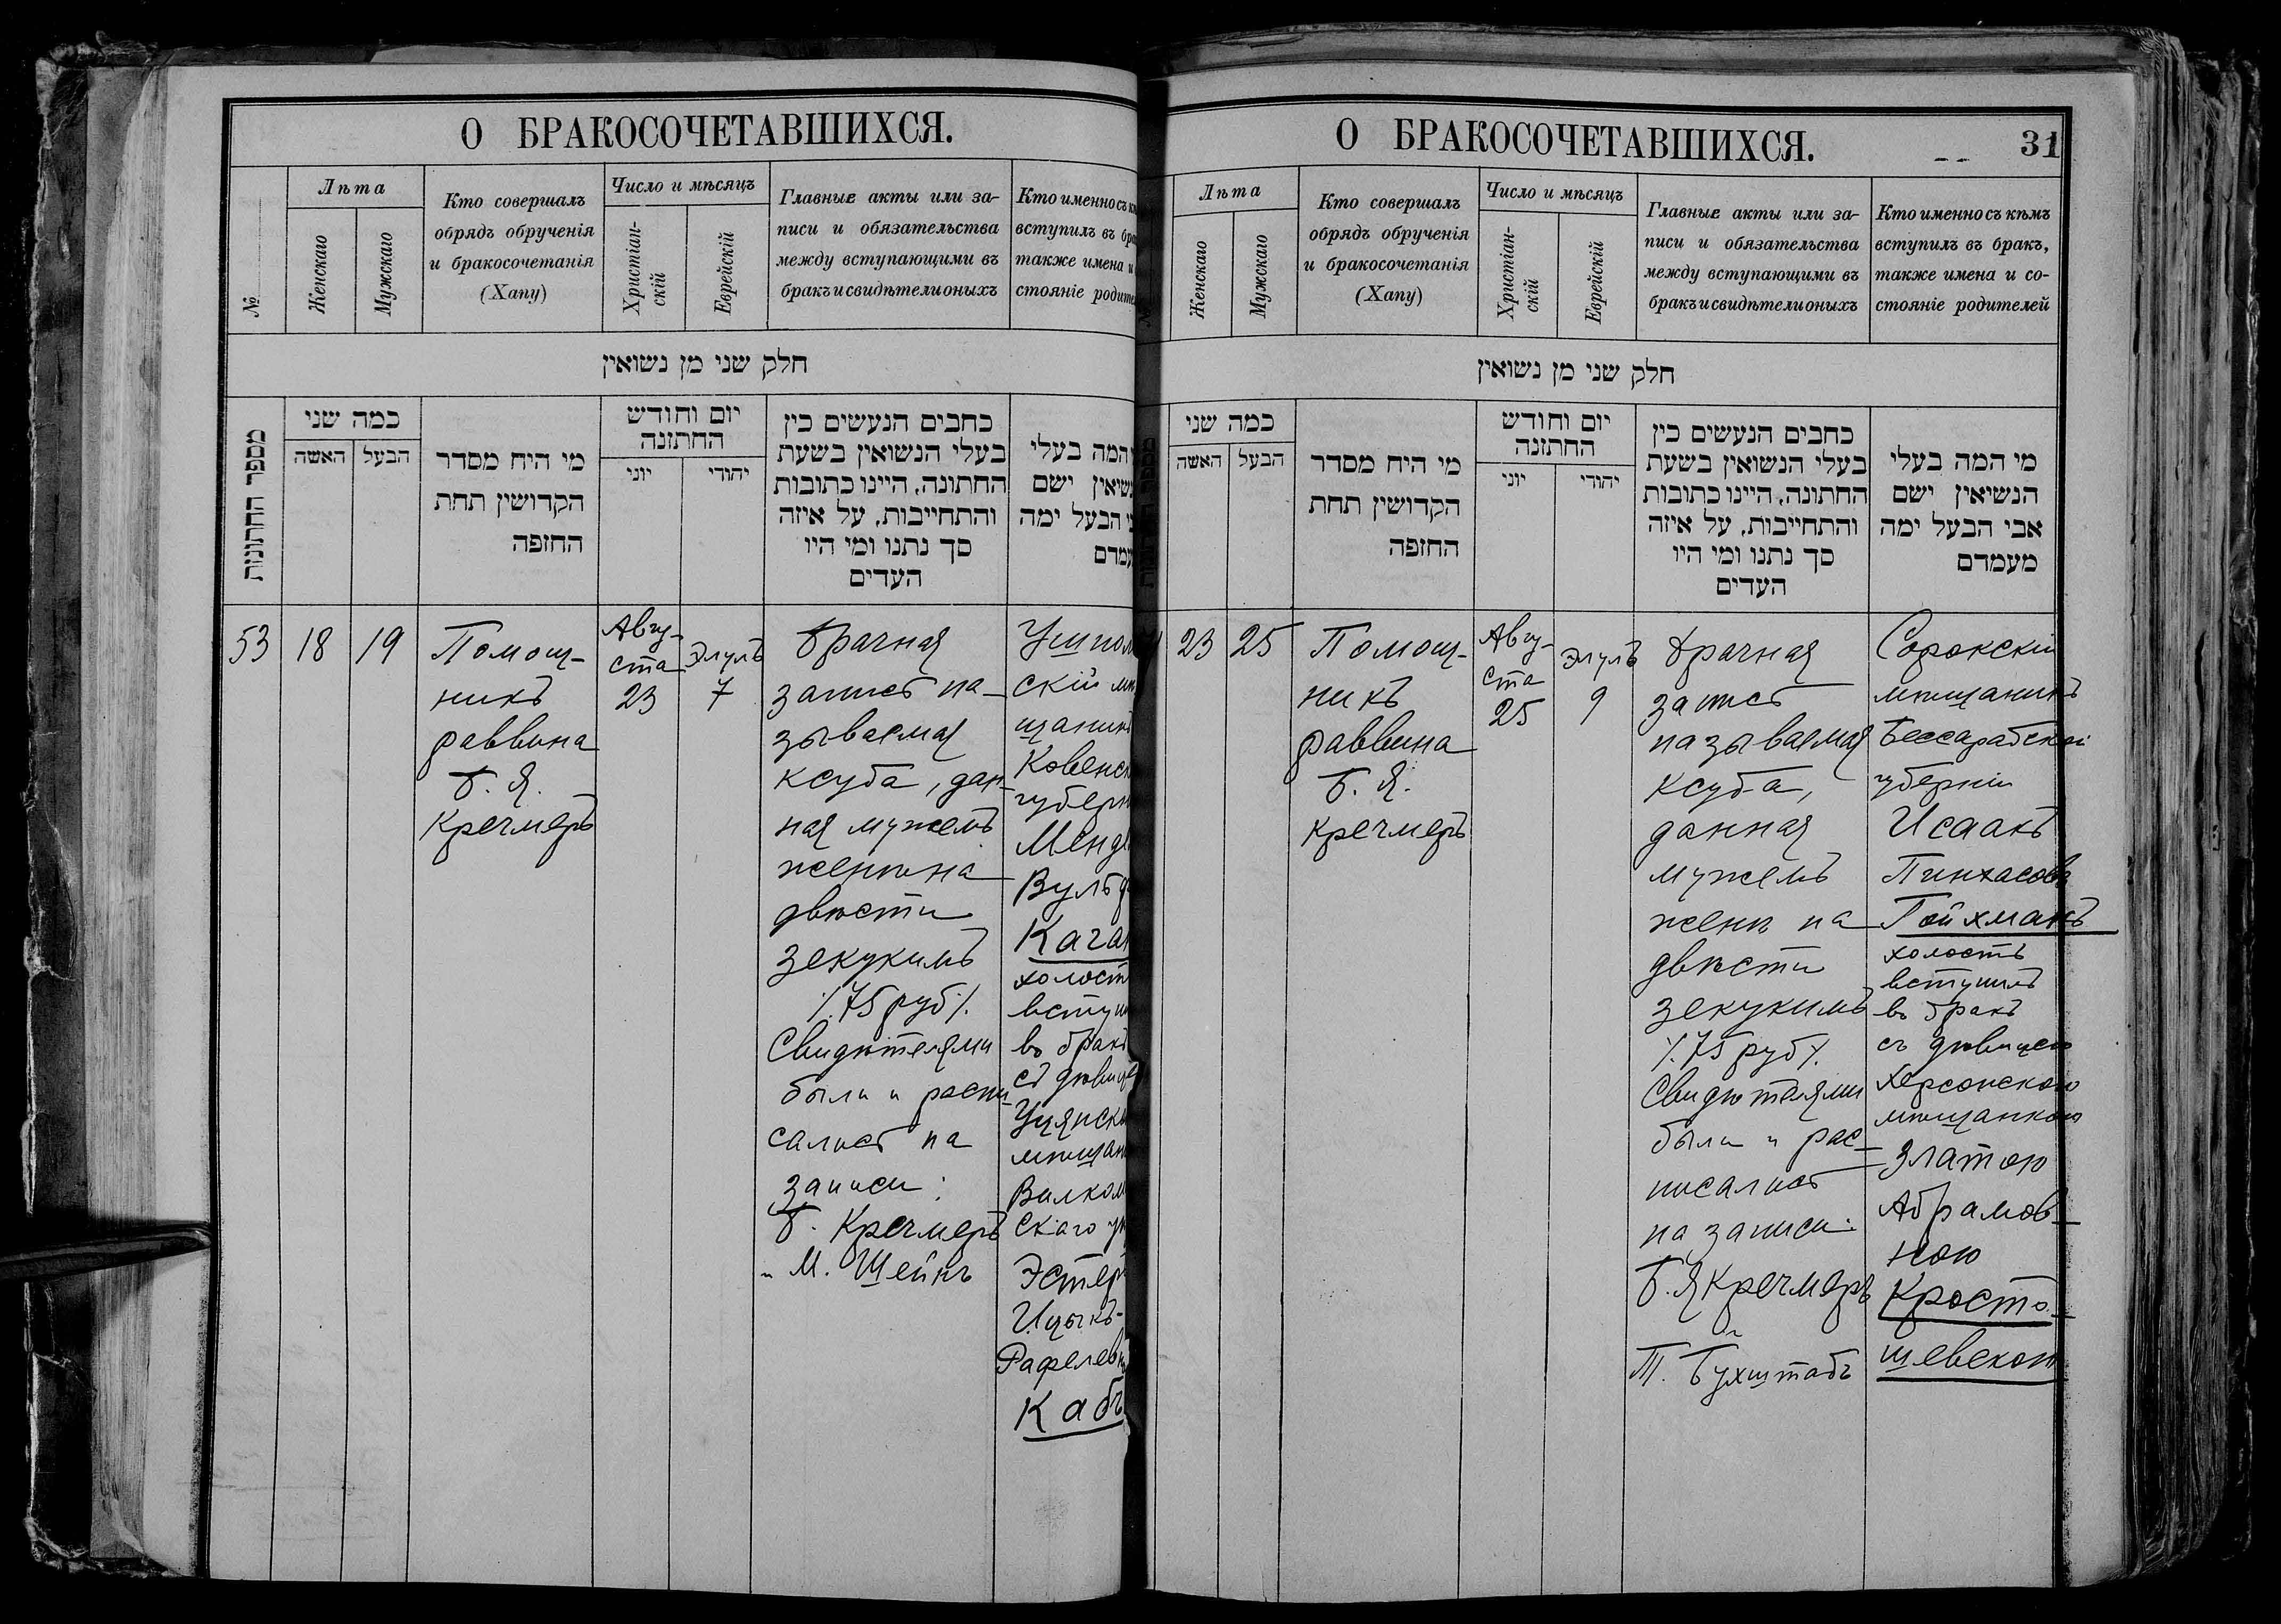 О БРАКОСОЧЕТАВШИХСЯ.
№
Лѣта
Женскаго
Мужскаго
Кто совершалъ
обрядъ обрученія
и бракосочетанія
(Хапу)
Число и мѣсяцъ
Христіан-
скій
Еврейскій
Главные акты или за-
писи и обязательства
между вступающими въ
бракъ и свидѣтели оныхъ
Кто именно съ
вступилъ въ
также имена и
стояніе
חלק שני מן נשואין
מספר החתונות
כמה שני
האשה
הבעל
מי היח מסדר
הקדושין תחת
החזפה
יום וחודש
החתזנה
יוני
יהודי
כחבים הנעשים כין
בעלי הנשואין בשעת
החתונה, היינו כתובות
והתחייבות, על איזה
סך נתנו ומי היו
העדים
המה בעלי
ישם
הבעל ימה
53
18
19
Помощ-
никъ
раввина
Б. Я.
Кречмеръ
Авгу-
ста
23
Элулъ
7
Брачная
запись на-
зываемая
ксуба, дан-
ная мужемъ
жени на
двѣсти
зекукимъ
/.75 руб/.
Свидѣтелями
были и распи-
сались на
записи:
Б. Кречмеръ
и М. Шейнъ
скій
Каган
холост
въ бракъ
съ
скаго
Ицыкъ-
Кабъ
О БРАКОСОЧЕТАВШИХСЯ.
31
Лѣта
Женскаго
Мужскаго
Кто совершалъ
обрядъ обрученія
и бракосочетанія
(Хапу)
Число и мѣсяцъ
Христіан-
скій
Еврейскій
Главные акты или за-
писи и обязательства
между вступающими въ
бракъ и свидѣтели оныхъ
Кто именно съ кѣмъ
вступилъ въ бракъ,
также имена и со-
стояніе родителей
חלק שני מן נשואין
כמה שני
האשה
הבעל
מי היח מסדר
הקדושין תחת
החזפה
יום וחודש
החתזנה
יוני
יהודי
כחבים הנעשים כין
בעלי הנשואין בשעת
החתונה, היינו כתובות
והתחייבות, על איזה
סך נתנו ומי היו
העדים
מי המה בעלי
הנשיאין ישם
אבי הבעל ימה
מעמדם
23
25
Помощ-
никъ
раввина
Б. Я.
Кречмеръ
Авгу-
ста
25
Элулъ
9
Брачная
запись
называемая
ксуба,
данная
мужемъ
женѣ на
двѣсти
зекукимъ
/.75 руб/.
Свидѣтелями
были и рас-
писались
на записи:
Б. Я Кречмеръ
Т. Бухштабъ
Сорокскій
мѣщанинъ
Бессарабской
губерніи
Исаакъ
Пинхасовъ
Гойхманъ
холостъ
вступилъ
въ бракъ
съ дѣвицею
Херсонскою
мѣщанкою
Златою
Абрамов-
ною
Кросто-
шевскою